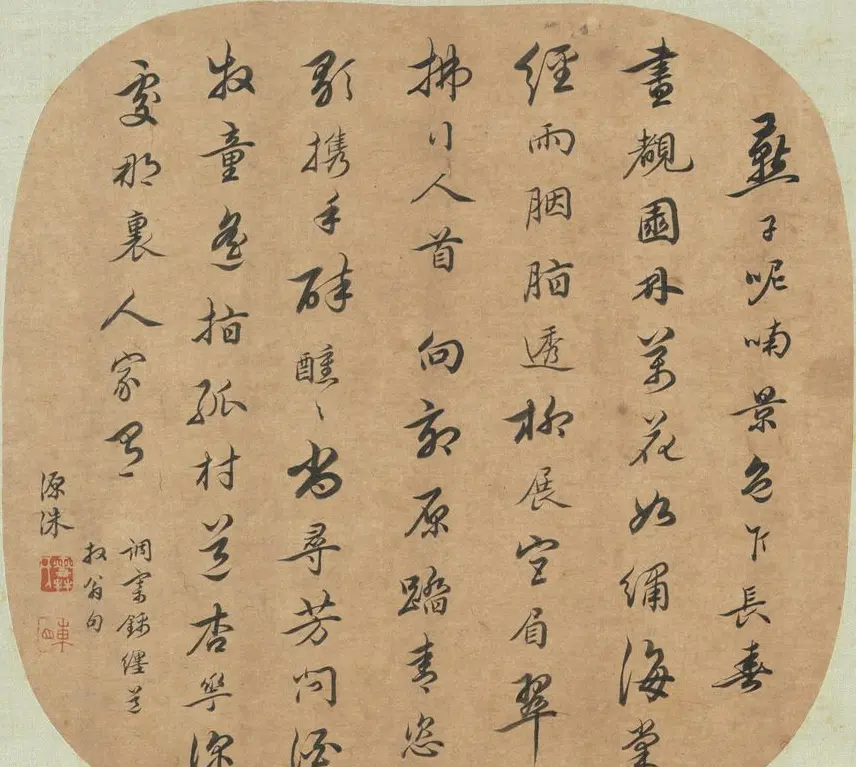 燕子呢喃景色乍長春
晝覩園林萬花如繡海棠
經雨胭脂透柳展宮眉翠
拂行人首向郊原踏青恣
歌携手酔醺〻尚尋芳問酒
牧童遙指孤村道杏花深
處那裏人家有
調寄錦纏道
放翁句
源洙